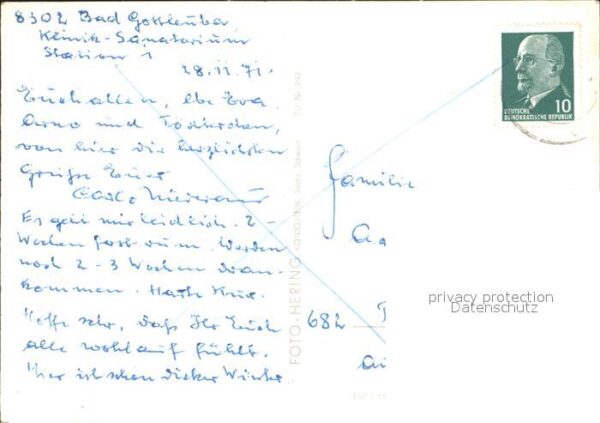 8302 Bad Gottleuba
Klinik-Sanatorium
Station 1
28.11.71.
Euch allen, lbe Eva
Arno und Töchterchen,
von hier die herzlichsten
Grüße Euer
Es geht mir leidlich. 2
Wochen fast rum. Werden
noch 2-3 Wochen dran-
kommen. Harte Kur.
Hoffe sehr, daß Ihr Euch
alle wohlauf fühlt.
Hier ist schon dicker Winter
FOTO-HERING KÖNIGSTEIN Sächs. Schweiz
DEUTSCHE
DEMOKRATISCHE REPUBLIK
10
Familie
682
privacy protection
Datenschutz